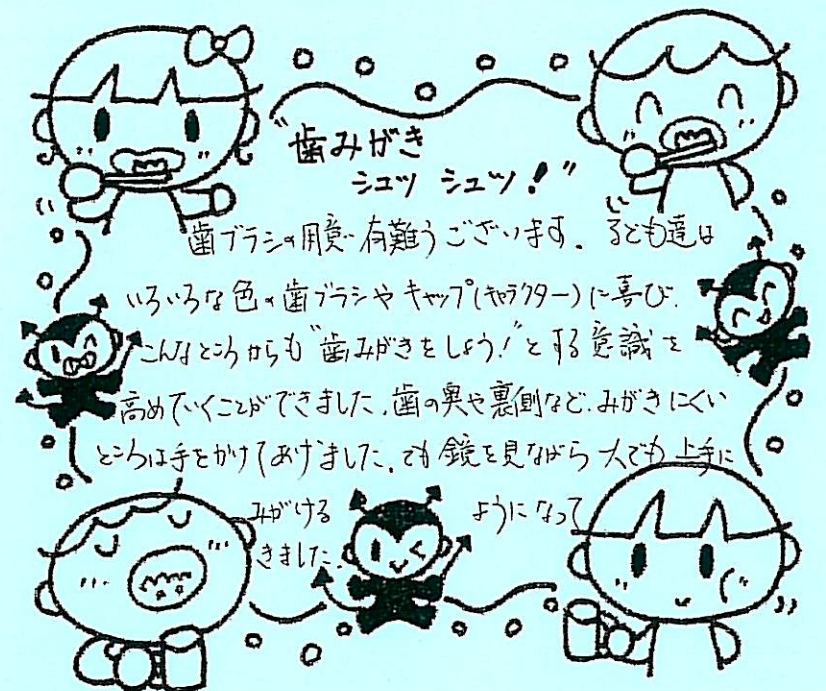 "歯みがき
シュッ シュッ!"
歯ブラシの用意、有難うございます. 子ども達は
いろいろな色の歯ブラシやキャップ(キャラクター)に喜び.
こんなところからも"歯みがきをしよう!"とする意識を
高めていくことができました.歯の奥や裏側など.みがきにくい
ところは手をかけてあげました.でも鏡を見ながら一人でも上手に
みがける ようになって
きました.